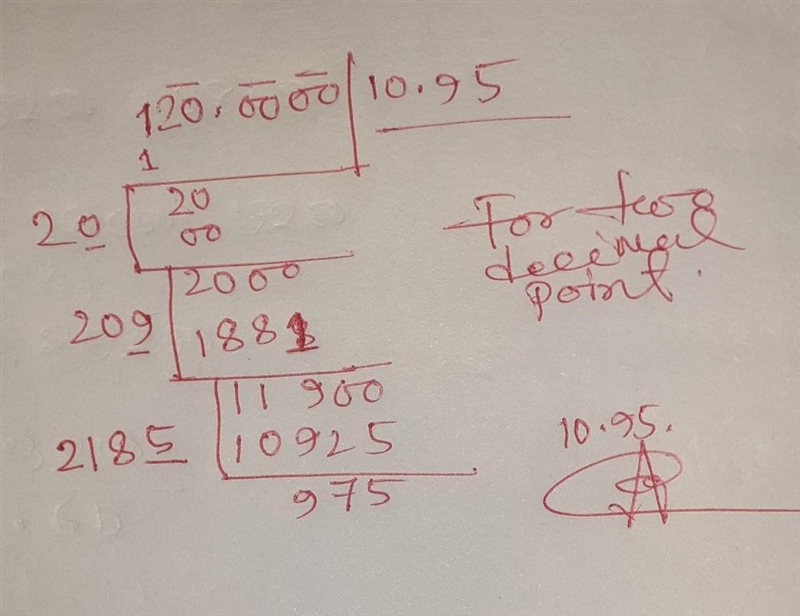 120.0000 10.95
1
20 20
00
2000
209 1881
11900
2185 10925
975
For two
decimal
point.
10.95.